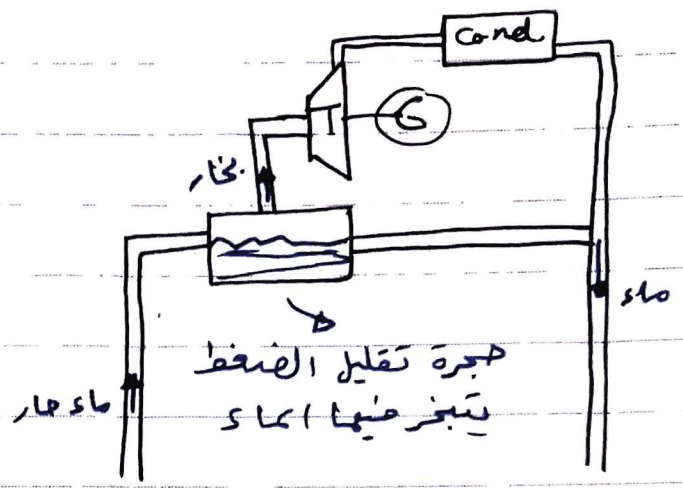 Cond
T
G
بخار
ماء
حجرة تقليل الضغط
يتبخر فيها الماء
ماء حار